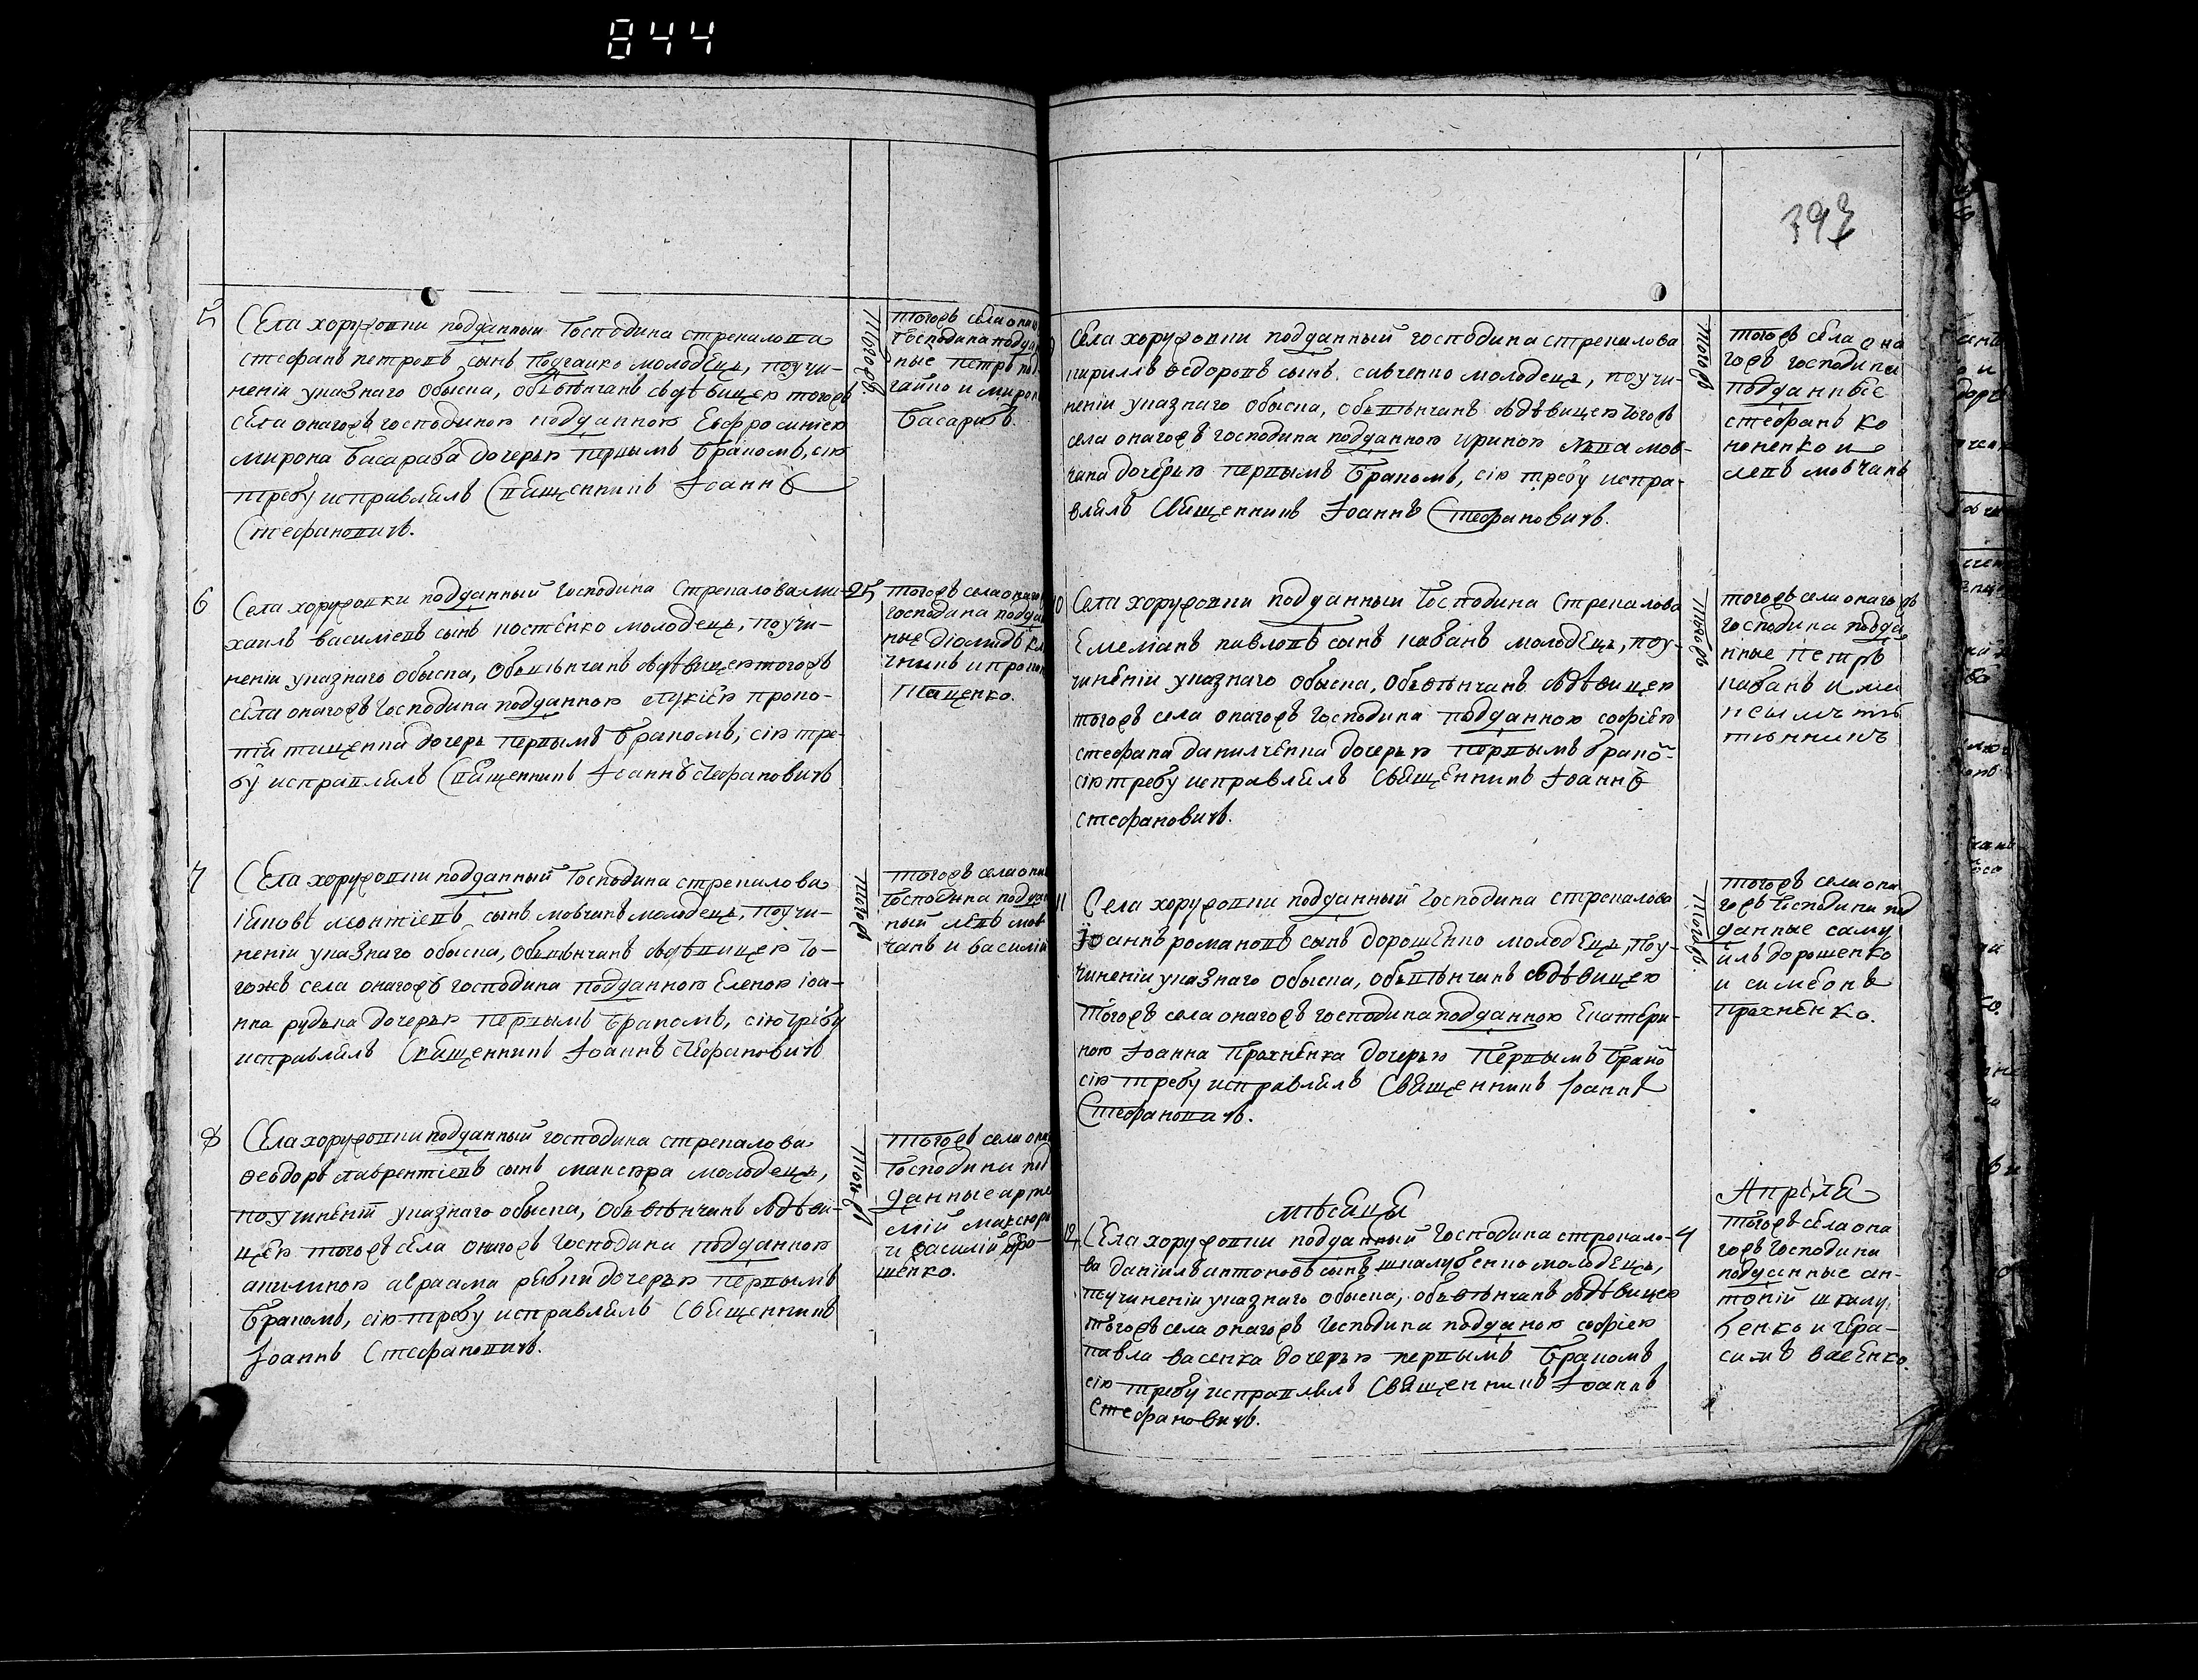 844
5
Села хоружовки подданный Господина стрекалова
стефанъ петровъ сынъ Подгайко молодецъ, поучи-
неніи указнаго обыска, обвѣнчанъ здѣвицею тогожъ
села онагожъ господина подданною Евфросиніею
мирона басараба дочерью первымъ бракомъ, сію
требу исправлялъ Священникъ Іоаннъ
Стефановичъ.
тогожъ
тогожъ села
Господина
ные петръ
гайко и миронъ
басарабъ.
6
Села хоружовки подданный Господина Стрекалова ми-
хаилъ василіевъ сынъ костенко молодецъ, поучи-
неніи указнаго обыска, обвѣнчанъ здѣвицею тогожъ
села онагожъ Господина подданною лукіею проко-
пія тищенка дочерь первымъ бракомъ, сію тре-
бу исправлялъ Священникъ Іоаннъ Стефановичъ
25
тогожъ села
господина
ные діомидъ
чникъ и
Тищенко.
7
Села хоружовки подданный Господина стрекалова
іаковъ леонтіевъ сынъ мовчанъ молодецъ, поучи-
неніи указнаго обыска, обвѣнчанъ здѣвицею то-
гожъ села онагожъ господина подданною Еленою іоа-
нна рудька дочерью первымъ бракомъ, сію требу
исправлялъ Священникъ Іоаннъ Стефановичъ
тогожъ
тогожъ села
Господина
ный левъ мов
чанъ и василій
8
Села хоружовки подданный господина стрекалова
Ѳеодоръ лаврентіевъ сынъ максюра молодецъ,
поучиненіи указнаго обыска, обвѣнчанъ здѣви-
цею тогожъ села онагожъ Господина подданною
акилиною авраама рыбки дочерью первымъ
бракомъ, сію требу исправлялъ Священникъ
Іоаннъ Стефановичъ.
тогожъ
тогожъ села
Господина под
данные арте
мій максюра
и василій
шенко.
397
Села хоружовки подданный господина стрекалова
кириллъ Ѳедоровъ сынъ савченко молодецъ, поучи-
неніи указнаго обыска, обвѣнчанъ здѣвицею тогожъ
села онагожъ господина подданною ириною льва мов-
чана дочерью первымъ бракомъ, сію требу испра-
влялъ Священникъ Іоаннъ Стефановичъ.
тогожъ
тогожъ села она
гожъ господина
подданные
стефанъ ко
ноненко и
левъ мовчанъ
10
Села хоружовки подданный Господина Стрекалова
Емеліанъ павловъ сынъ кабанъ молодецъ, поу-
чиненіи указнаго обыска, обвѣнчанъ здѣвицею
тогожъ села онагожъ Господина подданною софіею
стефана данилченка дочерью первымъ брако
сію требу исправлялъ Священникъ Іоаннъ
стефановичъ.
тогожъ
тогожъ села онагожъ
господина подда
нные петръ
кабанъ и ми
11
Села хоружовки подданный Господина стрекалова
Іоаннъ романовъ сынъ дорошенко молодецъ, поу-
чиненіи указнаго обыска, обвѣнчанъ здѣвицею
тогожъ села онагожъ господина подданною Екатери-
ною Іоанна Прахненка дочерью первымъ брако
сію требу исправлялъ Священникъ Іоаннъ
Стефановичъ.
тогожъ
тогожъ села она
гожъ Господина под
данные саму
илъ дорошенко
и симеонъ
прахненко.
мѣсяца
Апреля
12
Села хоружовки подданный Господина стрекало-
ва даніилъ антоновъ сынъ шкалубенко молодецъ,
поучиненіи указнаго обыска, обвѣнчанъ здѣвицею
тогожъ села онагожъ Господина подданою софіею
павла васенка дочерью первымъ бракомъ
сію требу исправлялъ Священникъ Іоаннъ
Стефановичъ.
4
тогожъ села она
гожъ господина
подданные ан-
тоній шкалу
бенко и гера-
симъ васенко.